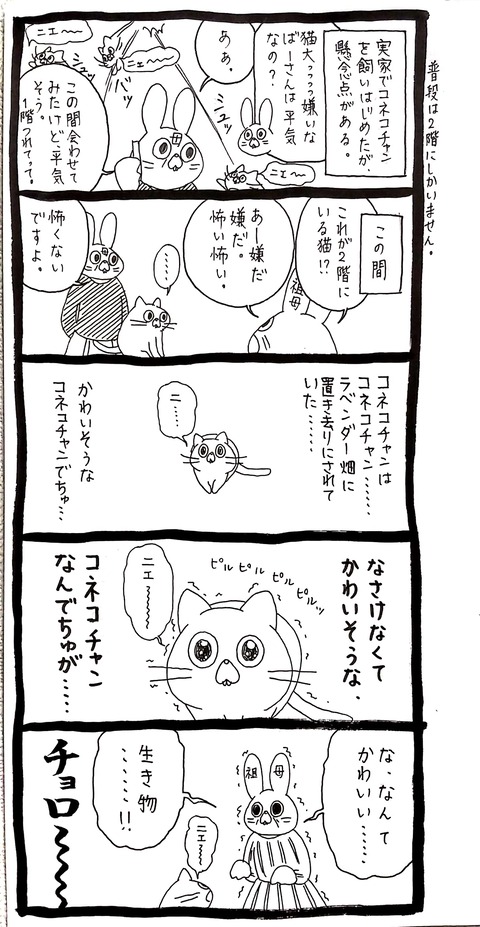 普段は2階にしかいません。
実家でコネコチャン
を飼いはじめたが、
懸念点がある。
猫犬っっっっ嫌いな
ばーさんは平気
なの?
あぁ。
シュッ
ニェ〜
バッ
ニェ〜〜
シュッ
ニェ〜〜
この間会わせて
みたけど、平気
そう。
1階つれてって。
この間
これが2階に
いる猫!?
祖母
あー嫌だ
嫌だ。
怖い怖い。
……
怖くない
ですよ。
コネコチャンは
コネコチャン……
ラベンダー畑に
置き去りにされて
いた……
ニ……
かわいそうな
コネコチャンでちゅ…
なさけなくて
かわいそうな、
ピルピルピルピルッ
ニェ〜〜〜
コネコチャン
なんでちゅが……
な、なんて
かわいい……
祖母
生き物
……!!
ニェ〜
チョロ〜〜〜